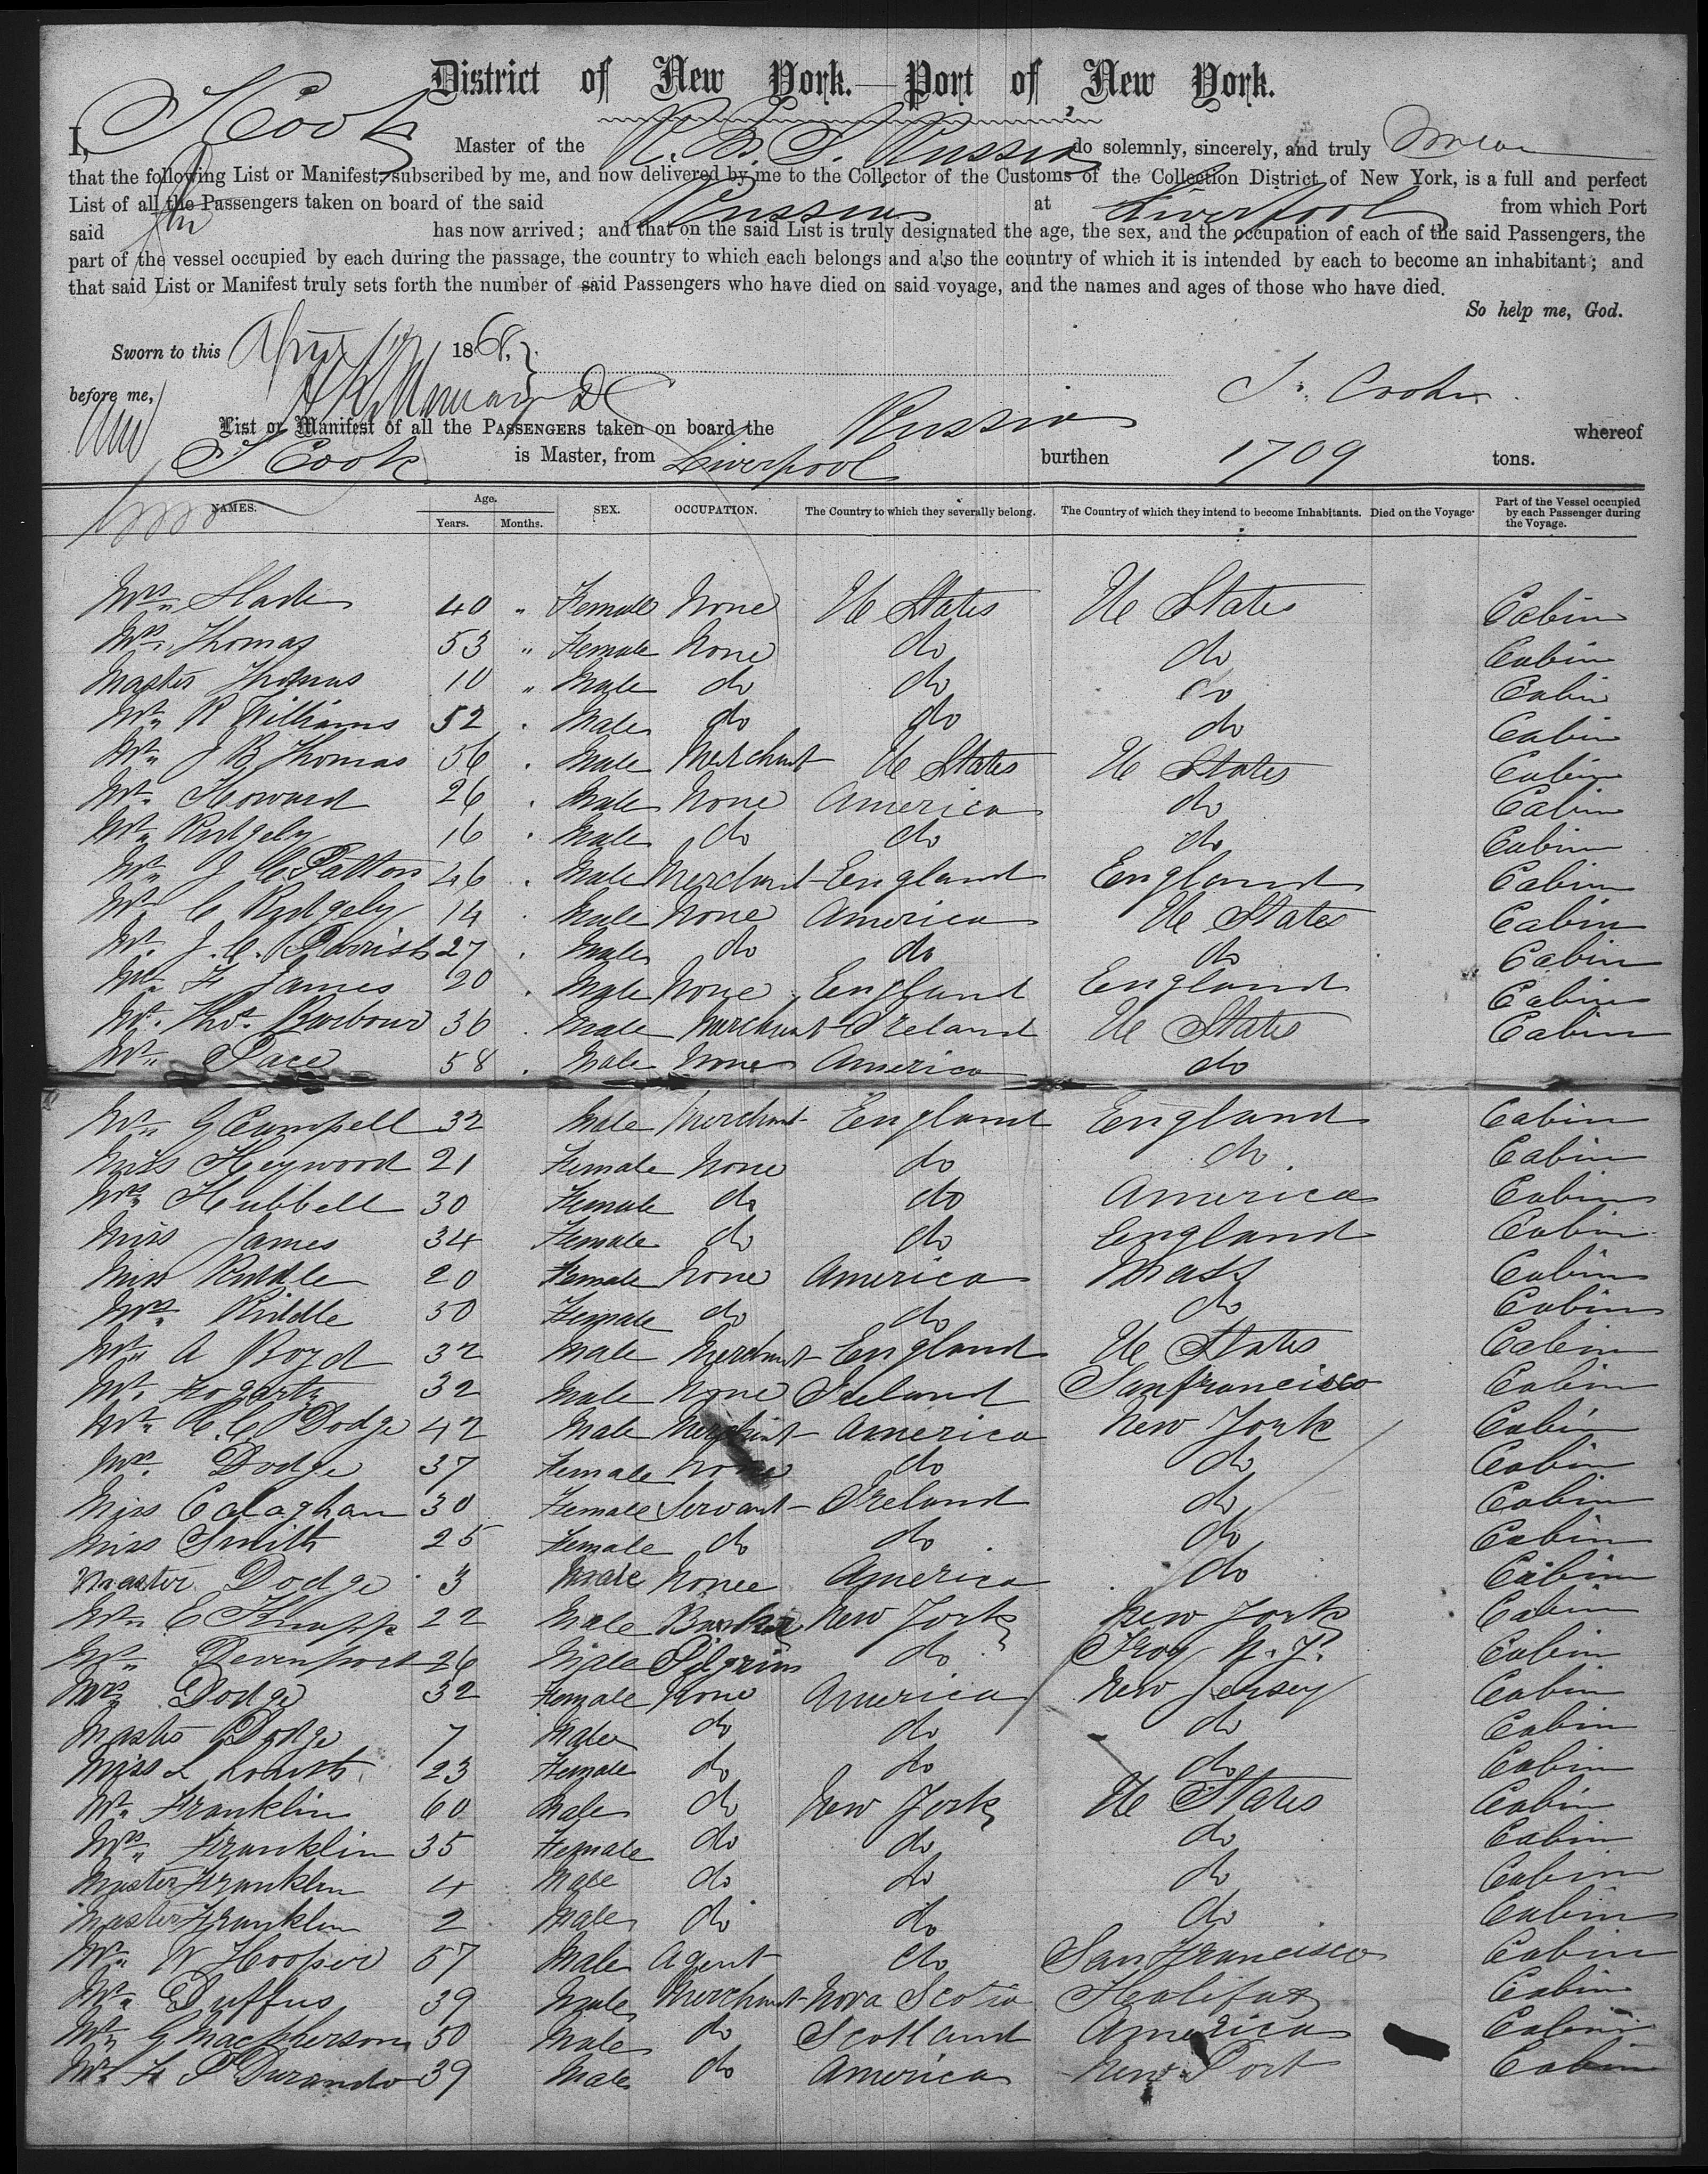 District of New York.—Port of New York.
I, S Cook Master of the R. M. S. Russia do solemnly, sincerely, and truly swear
that the following List or Manifest, subscribed by me, and now delivered by me to the Collector of the Customs of the Collection District of New York, is a full and perfect
List of all the Passengers taken on board of the said Russia at Liverpool from which Port
said has now arrived; and that on the said List is truly designated the age, the sex, and the occupation of each of the said Passengers, the
part of the vessel occupied by each during the passage, the country to which each belongs and also the country of which it is intended by each to become an inhabitant; and
that said List or Manifest truly sets forth the number of said Passengers who have died on said voyage, and the names and ages of those who have died.
So help me, God.
Sworn to this April 1868,
before me,
List or Manifest of all the PASSENGERS taken on board the Russia whereof
S Cook is Master, from Liverpool burthen 1709 tons.
NAMES. Age. Years. Months. SEX. OCCUPATION. The Country to which they severally belong. The Country of which they intend to become Inhabitants. Died on the Voyage. Part of the Vessel occupied by each Passenger during the Voyage.
Mrs Slade 40 " Female None Ue States Ue States Cabin
Mrs Thomas 53 " Female None do do Cabin
Master Thomas 10 " Male do do do Cabin
Mr R Williams 52 . Male do do do Cabin
Mr J B Thomas 56 . Male Merchant Ue States Ue States Cabin
Mr Howard 26 . Male None America do Cabin
Mr Ridgely 16 . Male do do do Cabin
Mr J C Patton 46 . Male Merchant England England Cabin
Mr C Ridgely 14 . Male None America Ue States Cabin
Mr. J. C. Parrish 27 . Male do do do Cabin
Mr F James 20 . Male None England England Cabin
Mr. Thos. Barbour 36 . Male Merchant Ireland Ue States Cabin
Mr Pace 58 . Male None America do
Mr G Campell 32 Male Merchant England England Cabin
Miss Heywood 21 Female None do do. Cabin
Mrs Hubbell 30 Female do do America Cabin
Miss James 34 Female do do England Cabin
Miss Riddle 20 Female None America Mass Cabin
Mrs Riddle 30 Female do do do Cabin
Mr A Boyd 32 Male Merchant England Ue States Cabin
Mr. Fogarty 32 Male None Ireland San francisco Cabin
Mr C. C. Dodge 42 Male Merchant America New York Cabin
Mrs. Dodge 37 Female None do do Cabin
Miss Calaghan 30 Female Servant Ireland do Cabin
Miss Smith 25 Female do do do Cabin
Master Dodge 3 Male None America do Cabin
Mr E Knapp 22 Male Banker New York New York Cabin
Mr Devenport 26 Male Pilgrim do Troy N. Y. Cabin
Mrs Dodge 32 Female None America New Jersey Cabin
Master Dodge 7 Male do do do Cabin
Miss L 23 Female do do do Cabin
Mr. Franklin 60 Male do New York Ue States Cabin
Mrs Franklin 35 Female do do do Cabin
Master Franklin 4 Male do do do Cabin
Master Franklin 2 Male do do do Cabin
Mr W Hooper 57 Male Agent do San Francisco Cabin
Mr Duffus 39 Male Merchant Nova Scotia Halifax Cabin
Mr G MacPherson 50 Male do Scotland America Cabin
Mr F P Durando 39 Male do America New Port Cabin